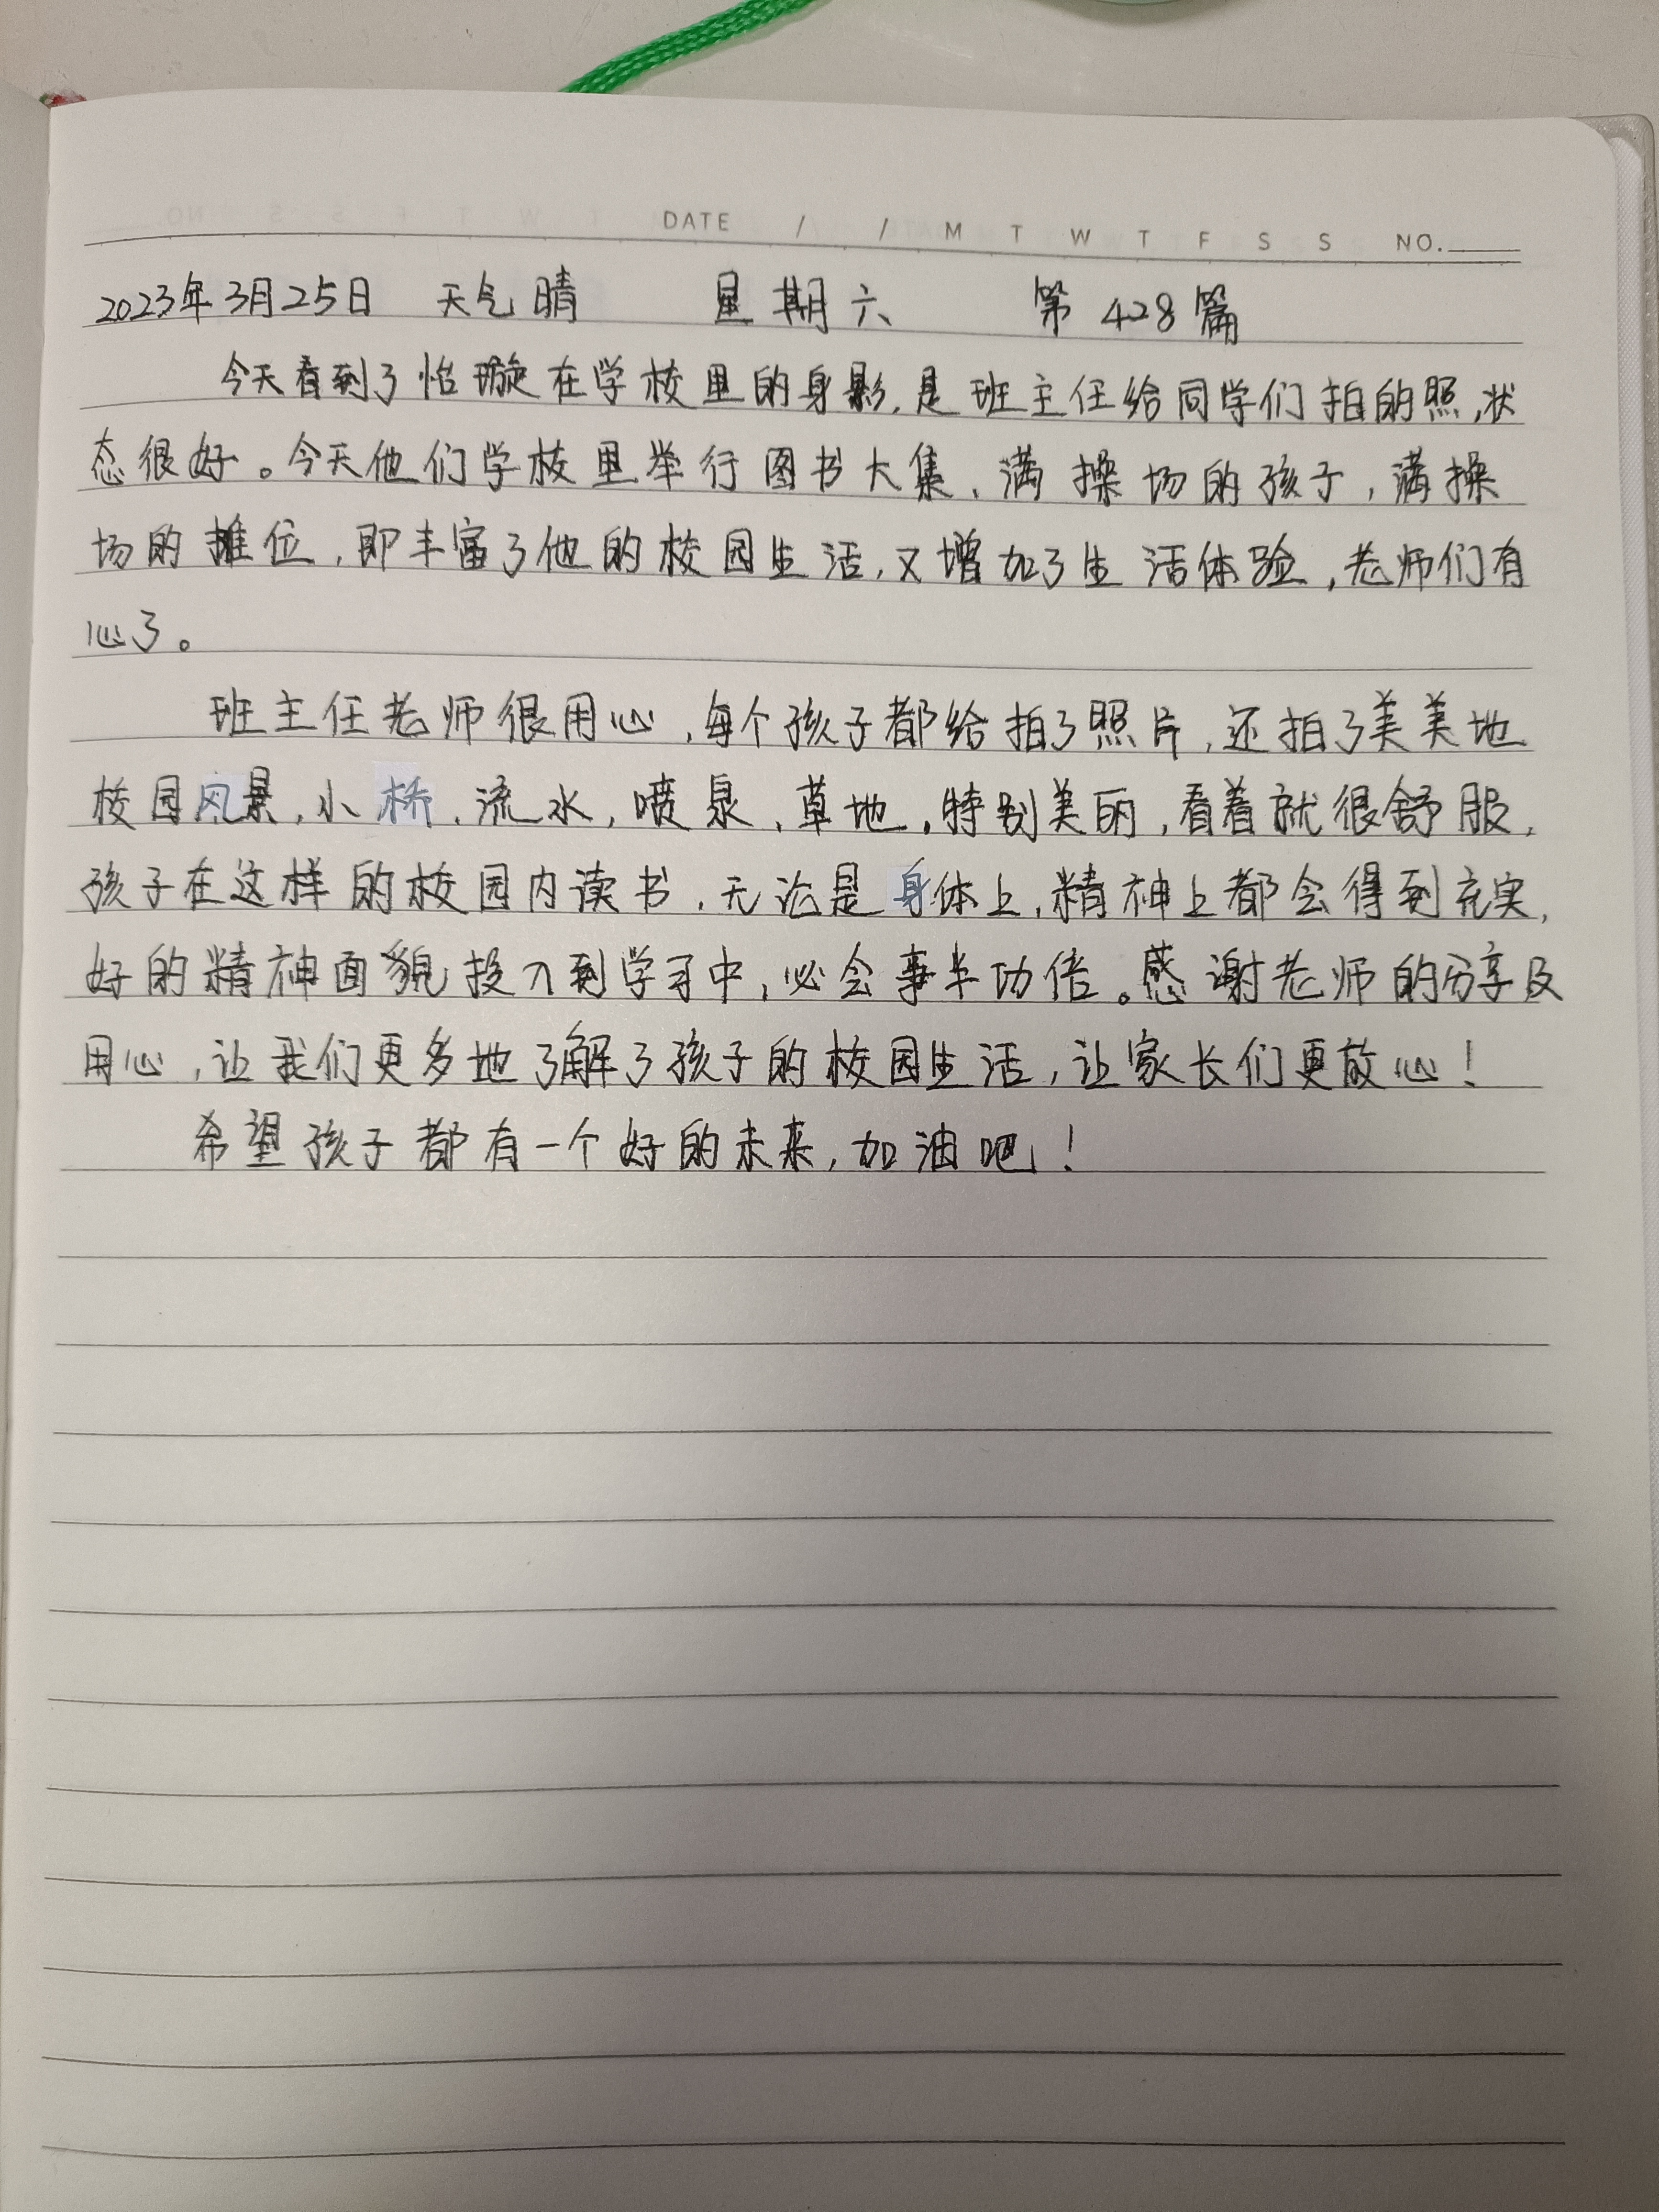 DATE / / M T W T F S S NO.
2023年3月25日 天气晴 星期六 第428篇
今天看到了怡璇在学校里的身影,是班主任给同学们拍的照,状
态很好。今天他们学校里举行图书大集、满操场的孩子,满操
场的摊位,即丰富了他的校园生活,又增加了生活体验,老师们有
心了。
班主任老师很用心,每个孩子都给拍了照片,还拍了美美地
校园风景,小桥、流水,喷泉、草地,特别美丽,看着就很舒服,
孩子在这样的校园内读书,无论是身体上,精神上都会得到充实,
好的精神面貌投入到学习中,必会事半功倍。感谢老师的分享及
用心,让我们更多地了解了孩子的校园生活,让家长们更放心!
希望孩子都有一个好的未来,加油吧!